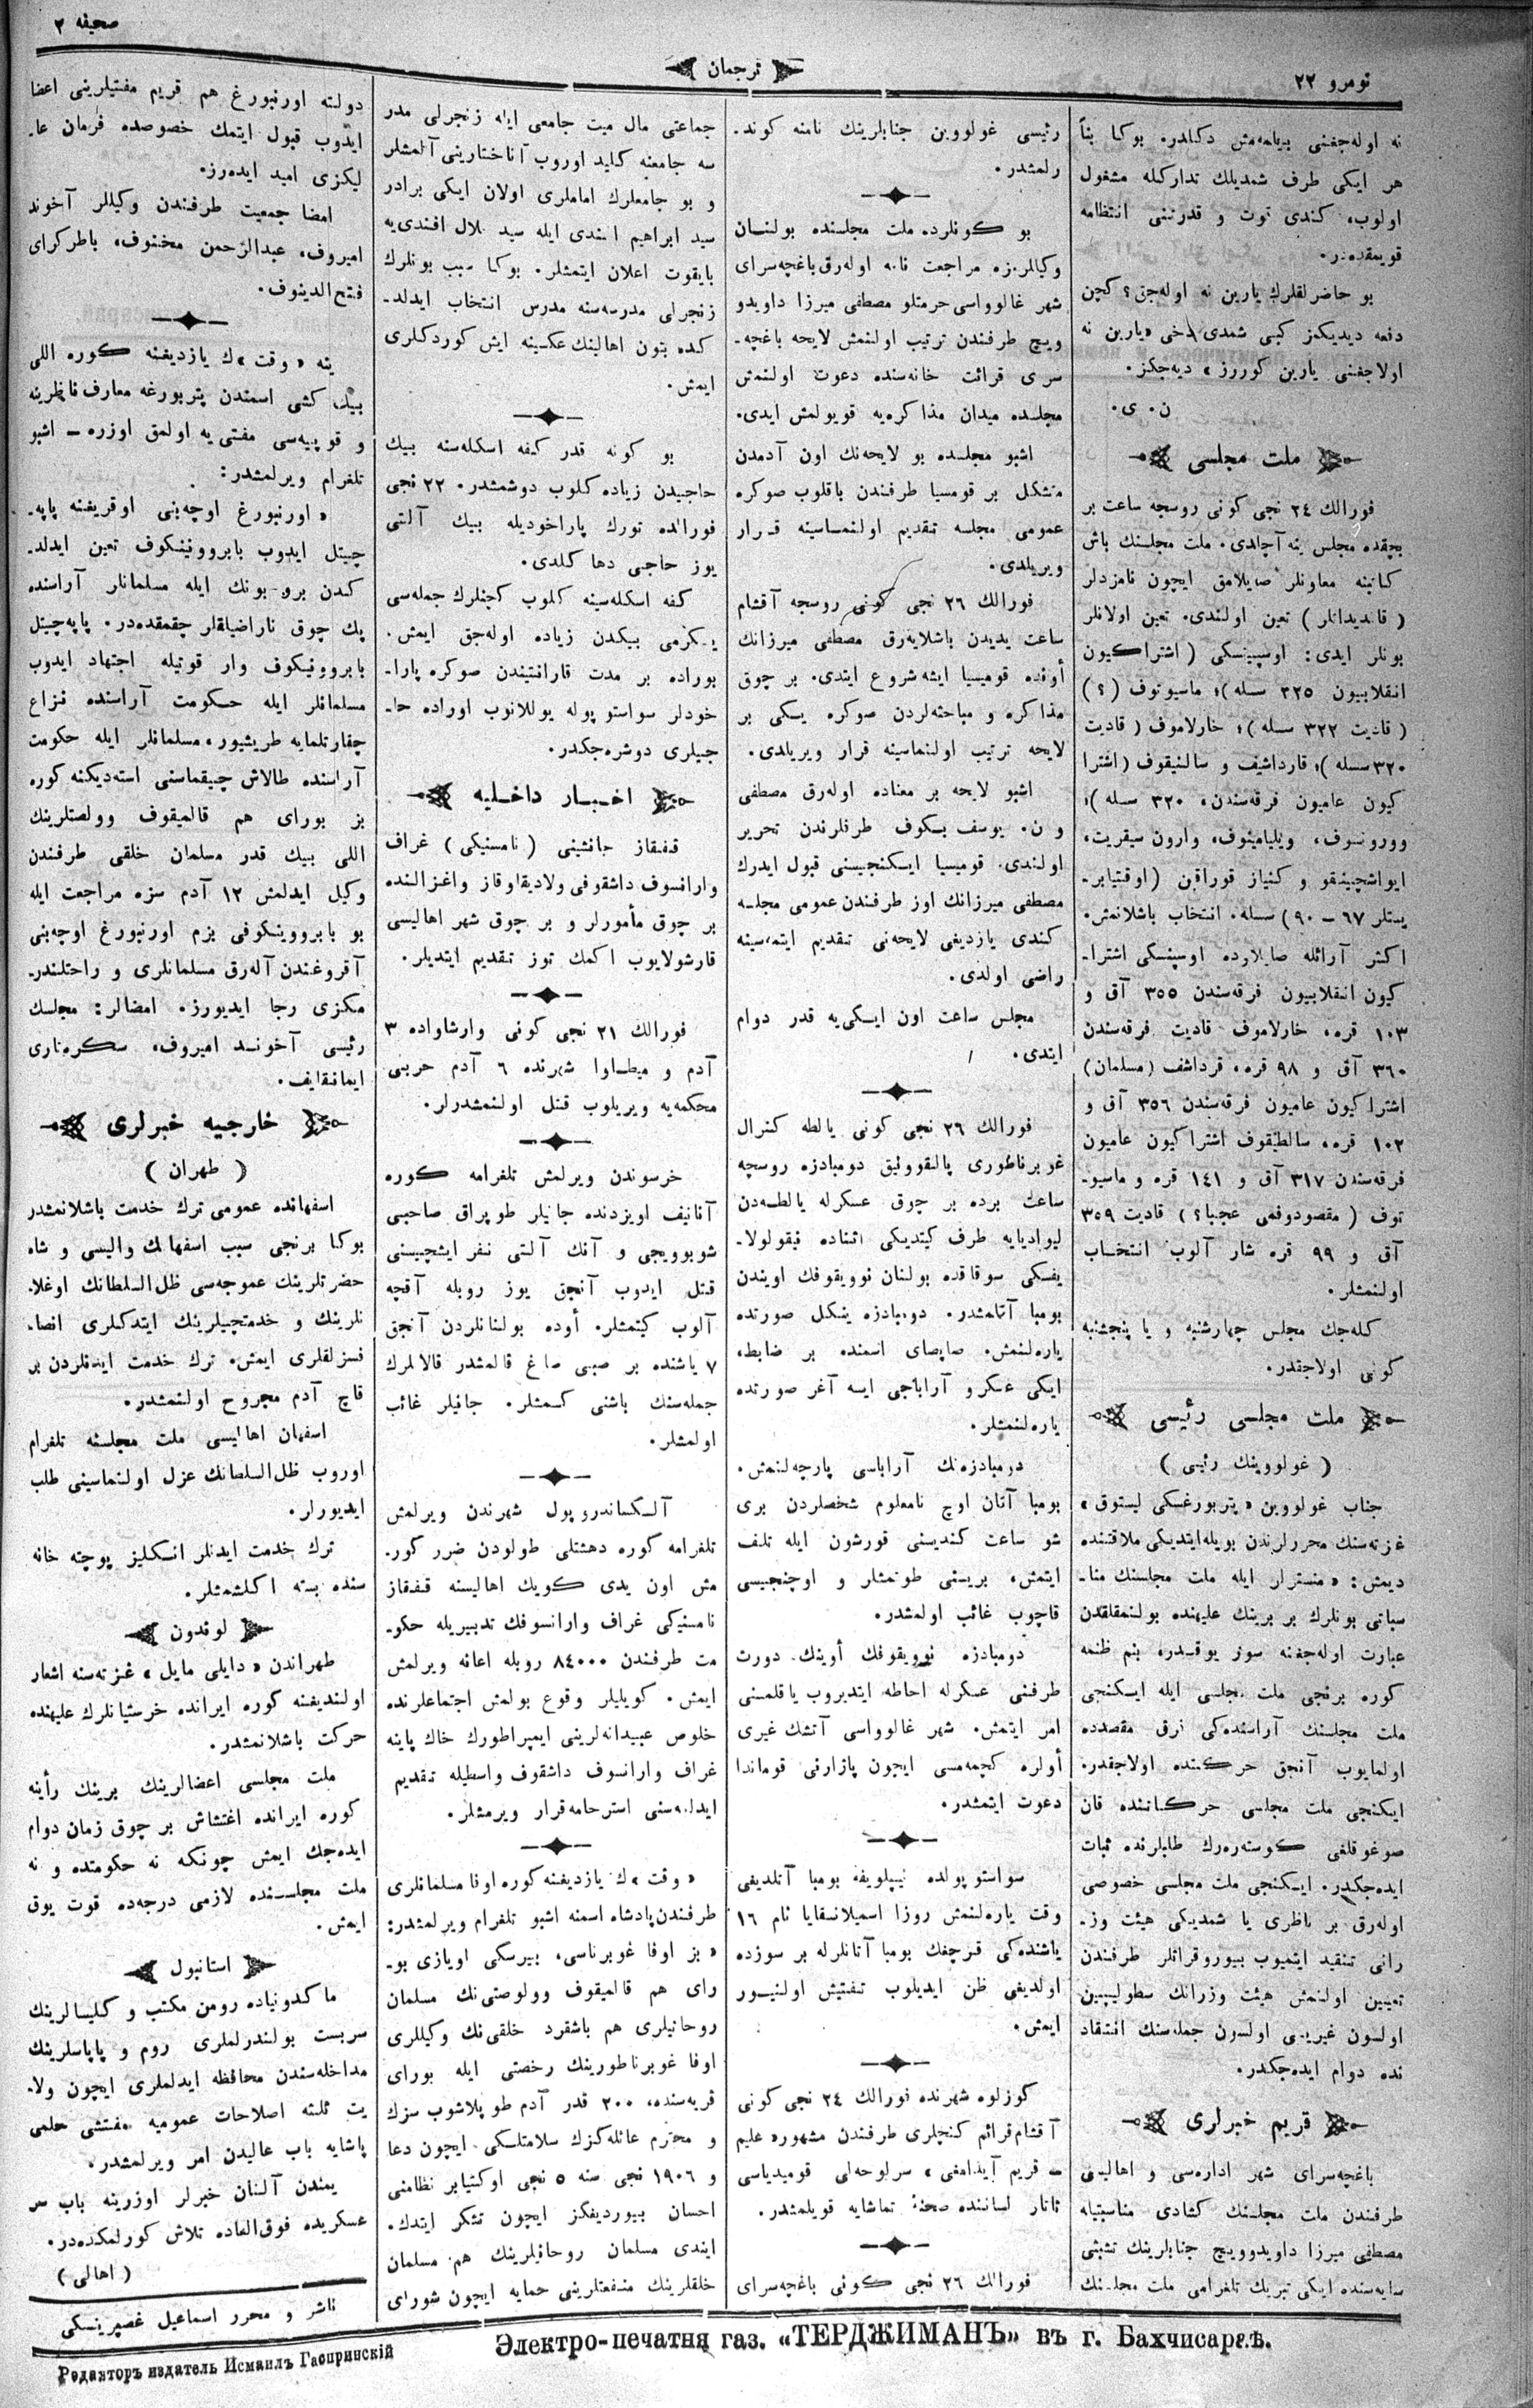 صحیفه ۲
ترجمان
نومرو ۲۲
نه اوله‌جغنی بیلمه‌مش دکلدر. بوکا بناً
هر ایکی طرف شمدیلك تدارکله مشغول
اولوب، کندی قوت و قدرتنی انتظامه
قویمقده‌در.
بو حاضرلقلرك یارین نه اوله‌جق؟ کچن
دفعه دیدیکمز کبی شمدی دخی «یارین نه
اولاجغنی یارین کوررز» دیه‌جکز.
ن. ی.
ملت مجلسی
فورالك ۲٤ نجی کونی روسجه ساعت بر
بچقده مجلس ینه آچلدی. ملت مجلسنك باش
کاتبنه معاونلر صایلامق ایچون نامزدلر
(قاندیداتلر) تعین اولندی. تعین اولانلر
بونلر ایدی: اوسپینسکی (اشتراکیون
انقلابیون ۳۲٥ سسله)؛ ماسیوتوف (؟)
(قادیت ۳۲۲ سسله)؛ خارلاموف (قادیت
۳۲۰ سسله)؛ قارداشیف و سالتیقوف (اشترا
کیون عامیون فرقه‌سندن، ۳۲۰ سسله)؛
یستلر ٦۷ – ۹۰) سسله. انتخاب باشلانمش.
اکثر آرائله صایلارده اوسپنسکی اشترا-
کیون انقلابیون فرقه‌سندن ۳٥٥ آق و
۱۰۳ قره، خارلاموف قادیت فرقه‌سندن
۳٦۰ آق و ۹۸ قره، قرداشف (مسلمان)
اشتراکیون عامیون فرقه‌سندن ۳٥٦ آق و
۱۰۲ قره، سالطیقوف اشتراکیون عامیون
فرقه‌سندن ۳۱۷ آق و ۱٤۱ قره و ماسیو-
توف (مقصودوفمی عجبا؟) قادیت ۳٥۹
آق و ۹۹ قره شار آلوب انتخاب
اولنمشلر.
کله‌جك مجلس چهارشنبه و یا پنجشنبه
کونی اولاجقدر.
ملت مجلسی رئیسی
(غولووینك رئیسی)
جناب غولووین «پتربورغسکی لیستوق»
غزته‌سنك محررلرندن بریله ایتدیکی ملاقتنده
دیمش: «منسترلر ایله ملت مجلسنك منا-
سباتی بونلرك بر برینك علیهنده بولنمقلقدن
عبارت اوله‌جغنه سوز یوقدر، بنم ظنمه
کوره برنجی ملت مجلسی ایله ایکنجی
ملت مجلسنك آراسنده‌کی فرق مقصدده
اولمایوب آنجق حرکتنده اولاجقدر.
ایکنجی ملت مجلسی حرکاتنده قان
صوغوقلغی کوسته‌ره‌رك طلبلرنده ثبات
ایده‌جکدر. ایکنجی ملت مجلسی خصوصی
اوله‌رق بر ناظری یا شمدیکی هیئت وز-
رانی تنقید ایتمیوب بیوروقراتلر طرفندن
تعیین اولنمش هیئت وزرانك سطولیپین
اولسون غیریسی اولسون جمله‌سنك انتقاد
نده دوام ایده‌جکدر.
قریم خبرلری
باغچه‌سرای شهر اداره‌سی و اهالیسی
طرفندن ملت مجلسنك کشادی مناسبتیله
مصطفی میرزا داویدوویچ جنابلرینك تشبثی
سایه‌سنده ایکی تبریك تلغرامی ملت مجلسنك
رئیسی غولووین جنابلرینك نامنه کوند-
رلمشدر.
بو کونلرده ملت مجلسنده بولنان
وکیللرمزه مراجعت نامه اوله‌رق باغچه‌سرای
شهر غالاواسی حرمتلو مصطفی میرزا داویدو
ویچ طرفندن ترتیب اولنمش لایحه باغچه-
سرای قرائت خانه‌سنده دعوت اولنمش
مجلسده میدان مذاکره‌یه قویولمش ایدی.
اشبو مجلسده بو لایحه‌نك اون آدمدن
متشکل بر قومسیا طرفندن باقلوب صوکره
عمومی مجلسه تقدیم اولنماسینه قرار
ویریلدی.
فورالك ۲٦ نجی کونی روسجه آقشام
ساعت یدیدن باشلایه‌رق مصطفی میرزانك
أونده قومیسیا ایشه شروع ایتدی. بر چوق
مذاکره و مباحثه‌لردن صوکره یسکی بر
لایحه ترتیب اولنماسینه قرار ویریلدی.
اشبو لایحه بر معناده اوله‌رق مصطفی
و ن. یوسف بیکوف طرفلرندن تحریر
اولندی. قومیسیا ایکنجیسنی قبول ایدرك
مصطفی میرزانك اوز طرفندن عمومی مجلسه
کندی یازدیغی لایحه‌نی تقدیم ایتمسینه
راضی اولدی.
مجلس ساعت اون ایکی‌یه قدر دوام
ایتدی.
فورالك ۲٦ نجی کونی یالطه کنرال
غوبرناطوری پالقوونیق دومبادزه روسچه
ساعت برده بر چوق عسکرله یالطه‌دن
لیوادیایه طرف کیتدیکی اثناده نیقولولا-
یفسکی سوقاقده بولنان نوویقوفك اویندن
بومبا آتلمشدر. دومبادزه ینکل صورتده
یاره‌لنمش. صاپصای اسمنده بر ضابط،
ایکی عسکر و آراباجی ایسه آغر صورتده
یاره‌لنمشلر.
دومبادزه‌نك آراباسی پارچه‌لنمش.
بومبا آتان اوچ نامعلوم شخصلردن بری
شو ساعت کندیسنی قورشون ایله تلف
ایتمش، بریسنی طوتمشلر و اوچنجیسی
قاچوب غائب اولمشدر.
دومبادزه نوویقوفك أوینك دورت
طرفنی عسکرله احاطه ایتدیروب یاقلمسنی
امر ایتمش. شهر غالوواسی آتشك غیری
أولره کچمه‌مسی ایچون پازارنی قوماندا
دعوت ایتمشدر.
سواستوپولده نیپلویفه بومبا آتلدیغی
وقت یاره‌لنمش روزا اسمیلانسقایا نام ۱٦
یاشنده‌کی قزچغك بومبا آتانلرله بر سوزده
اولدیغی ظن ایدیلوب تفتیش اولنیور
ایمش.
کوزلوه شهرنده فورالك ۲٤ نجی کونی
آقشام قرائم کنجلری طرفندن مشهور «علیم
– قریم آیدامغی» سرلوحه‌لی قومیدیاسی
تاتار لساننده صحنهٔ تماشایه قویلمشدر.
فورالك ۲٦ نجی کونی باغچه‌سرای
جماعتی مال میت جامعی ایله زنجرلی مدر
سه جامعنه کلید اوروب آناختارینی آلمشلر
و بو جامعلرك اماملری اولان ایکی برادر
سید ابراهیم افندی ایله سید بلال افندی‌یه
بایقوت اعلان ایتمشلر. بوکا سبب بونلرك
زنجرلی مدرسه‌سنه مدرس انتخاب ایدلد-
کده بتون اهالینك عکسینه ایش کوردکلری
ایمش.
بو کونه قدر کفه اسکله‌سنه بیك
حاجیدن زیاده کلوب دوشمشدر. ۲۲ نجی
فورالده تورك پاراخودیله بیك آلتی
یوز حاجی دها کلدی.
کفه اسکله‌سینه کلوب کچنلرك جمله‌سی
یکرمی بیکدن زیاده اوله‌جق ایمش.
بوراده بر مدت قارانتیندن صوکره پارا-
خودلر سواستوپوله یوللانوب اوراده حا-
جیلری دوشره‌جکدر.
اخبار داخلیه
قفقاز جانشینی (نامستیکی) غراف
وارانسوف داشقوفی ولادیقاوقاز واغزالنده
بر چوق مأمورلر و بر چوق شهر اهالیسی
قارشولایوب اکمك توز تقدیم ایتدیلر.
فورالك ۲۱ نجی کونی وارشاواده ۳
آدم و میطاوا شهرنده ٦ آدم حربی
محکمه‌یه ویریلوب قتل اولنمشدرلر.
خرسوندن ویرلمش تلغرامه کوره
آنانیف اویزدنده جانیلر طوپراق صاحبی
شوبوویچی و آنك آلتی نفر ایشچیسنی
قتل ایدوب آنجق یوز روبله آقچه
آلوب کیتمشلر. أوده بولنانلردن آنجق
۷ یاشنده بر صبی صاغ قالمشدر قالانلرك
جمله‌سنك باشنی کسمشلر. جانیلر غائب
اولمشلر.
آلکساندروپول شهرندن ویرلمش
تلغرامه کوره دهشتلی طولودن ضرر کور-
مش اون یدی کویك اهالیسنه قفقاز
نامستیکی غراف وارانسوفك تدبیریله حکو-
مت طرفندن ۸٤۰۰۰ روبله اعانه ویرلمش
ایمش. کویلیلر وقوع بولمش اجتماعلرنده
خلوص عبیدانه‌لرینی ایمپراطورك خاك پاینه
غراف وارانسوف داشقوف واسطیله تقدیم
ایدلمه‌سنی استرحامه قرار ویرمشلر.
«وقت»ك یازدیغنه کوره اوفا مسلمانلری
طرفندن پادشاه اسمنه اشبو تلغرام ویرلمشدر:
«بز اوفا غوبرناسی، بیرسکی اویازی بو-
رای هم قالمیقوف وولوصتی‌نك مسلمان
روحانیلری هم باشقرد خلقی‌نك وکیللری
اوفا غوبرناطورینك رخصتی ایله بورای
قریه‌سنده، ۲۰۰ قدر آدم طوپلاشوب سزك
و محترم عائله‌کزك سلامتلکی ایچون دعا
و ۱۹۰٦ نجی سنه ٥ نجی اوکتیابر نظامنی
احسان بیوردیغکز ایچون تشکر ایتدك.
ایندی مسلمان روحانیلرینك هم مسلمان
خلقلرینك منفعتلرینی حمایه ایچون شورای
دولته اورنبورغ هم قریم مفتیلرینی اعضا
ایدوب قبول ایتمك خصوصده فرمان عا-
لیکزی امید ایده‌رز.
امضا جمعیت طرفندن وکیللر آخوند
امیروف، عبدالرحمن مخنوف، باطرکرای
فتح‌الدینوف.
ینه «وقت»ك یازدیغنه کوره اللی
بیك کشی اسمندن پتربورغه معارف ناظرینه
و قوپیه‌سی مفتی‌یه اولمق اوزره – اشبو
تلغرام ویرلمشدر:
«اورنبورغ اوچه‌بنی اوقریغنه پاپه-
چیتل ایدوب بابروونیکوف تعین ایدلد-
کدن برو بونك ایله مسلمانلر آراسنده
پك چوق ناراضیلقلر چقمقده‌در. پاپه‌چیتل
بابروونیکوف وار قوتیله اجتهاد ایدوب
مسلمانلر ایله حکومت آراسنده نزاع
چقارتلمایه طریشیور، مسلمانلر ایله حکومت
آراسنده طالاش چیقماسنی استه‌دیکنه کوره
بز بورای هم قالمیقوف وولصتلرینك
اللی بیك قدر مسلمان خلقی طرفندن
وکیل ایدلمش ۱۲ آدم سزه مراجعت ایله
بو بابروونیکوفی بزم اورنبورغ اوچه‌بنی
آقروغندن آله‌رق مسلمانلری و راحتلندر-
مکزی رجا ایدیورز. امضالر: مجلسك
رئیسی آخوند امیروف، سکره‌تاری
ایمانقایف.
خارجیه خبرلری
(طهران)
اسفهانده عمومی ترك خدمت باشلانمشدر
بوکا برنجی سبب اسفهانك والیسی و شاه
حضرتلرینك عموجه‌سی ظل‌السلطانك اوغلا-
نلرینك و خدمتچیلرینك ایتدکلری انصا-
فسزلقلری ایمش. ترك خدمت ایدنلردن بر
قاچ آدم مجروح اولنمشدر.
اسفهان اهالیسی ملت مجلسنه تلغرام
اوروب ظل‌السلطانك عزل اولنماسینی طلب
ایدیورلر.
ترك خدمت ایدنلر انگلیز پوچته خانه
سنده بسته اکلشمشلر.
لوندون
طهراندن «دایلی مایل» غزته‌سنه اشعار
اولندیغنه کوره ایرانده خرستیانلرك علیهنده
حرکت باشلانمشدر.
ملت مجلسی اعضالرینك برینك رأینه
کوره ایرانده اغتشاش بر چوق زمان دوام
ایده‌جك ایمش چونکه نه حکومتده و نه
ملت مجلسنده لازمی درجه‌ده قوت یوق
ایمش.
استانبول
ماکدونیاده رومن مکتب و کلیسالرینك
سربست بولندرلملری روم و پاپاسلرینك
مداخله‌سندن محافظه ایدلملری ایچون ولا-
یت ثلثه اصلاحات عمومیه مفتشی حلمی
پاشایه باب عالیدن امر ویرلمشدر.
یمندن آلنان خبرلر اوزرینه باب سر
عسکریده فوق‌العاده تلاش کورلمکده‌در.
(اهالی)
ناشر و محرر اسماعیل غصپرینسکی
Редакторъ издатель Исмаилъ Гаспринскій
Электро-печатня газ. «ТЕРДЖИМАНЪ» въ г. Бахчисараѣ.